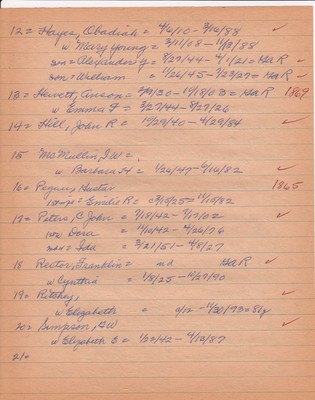 12 = Hayes, Obadiah = 4/6/10 - 3/16/88 ✓
w Mary Young = 3/11/08 - 11/13/88
son = Alexander G = 3/27/44 - 4/1/21 = Ha R ✓
son = William = 11/26/45 - 3/23/27 = Ha R ✓
13 = Hewett, Anson = - 11/18/03 = Ha R 1869
w Emma F = 3/27/44 - 8/27/26
14 = Hill, John R = 10/29/40 - 4/29/84 ✓
15 McMullin, I W =
w Barbara H = 2/26/47 - 6/16/82 ✓
16 = Huster 1865
Emilie R = 11/10/82
17 = Peters, C John = 7/18/42 - 1/17/02 ✓
w Dora = 11/10/42 - 4/26/76
Ida = 3/21/51 - 4/8/27
18 Rector, Franklin = nd Ha R ✓
w Cynthia = 1/8/25 - 10/27/90
19 = Ritchey, ✓
w Elizabeth = 9/12 - 1/20/93 = 80y
20 = Simpson, G W ✓
w Elizabeth E = 1/23/42 - 4/10/87
21 =